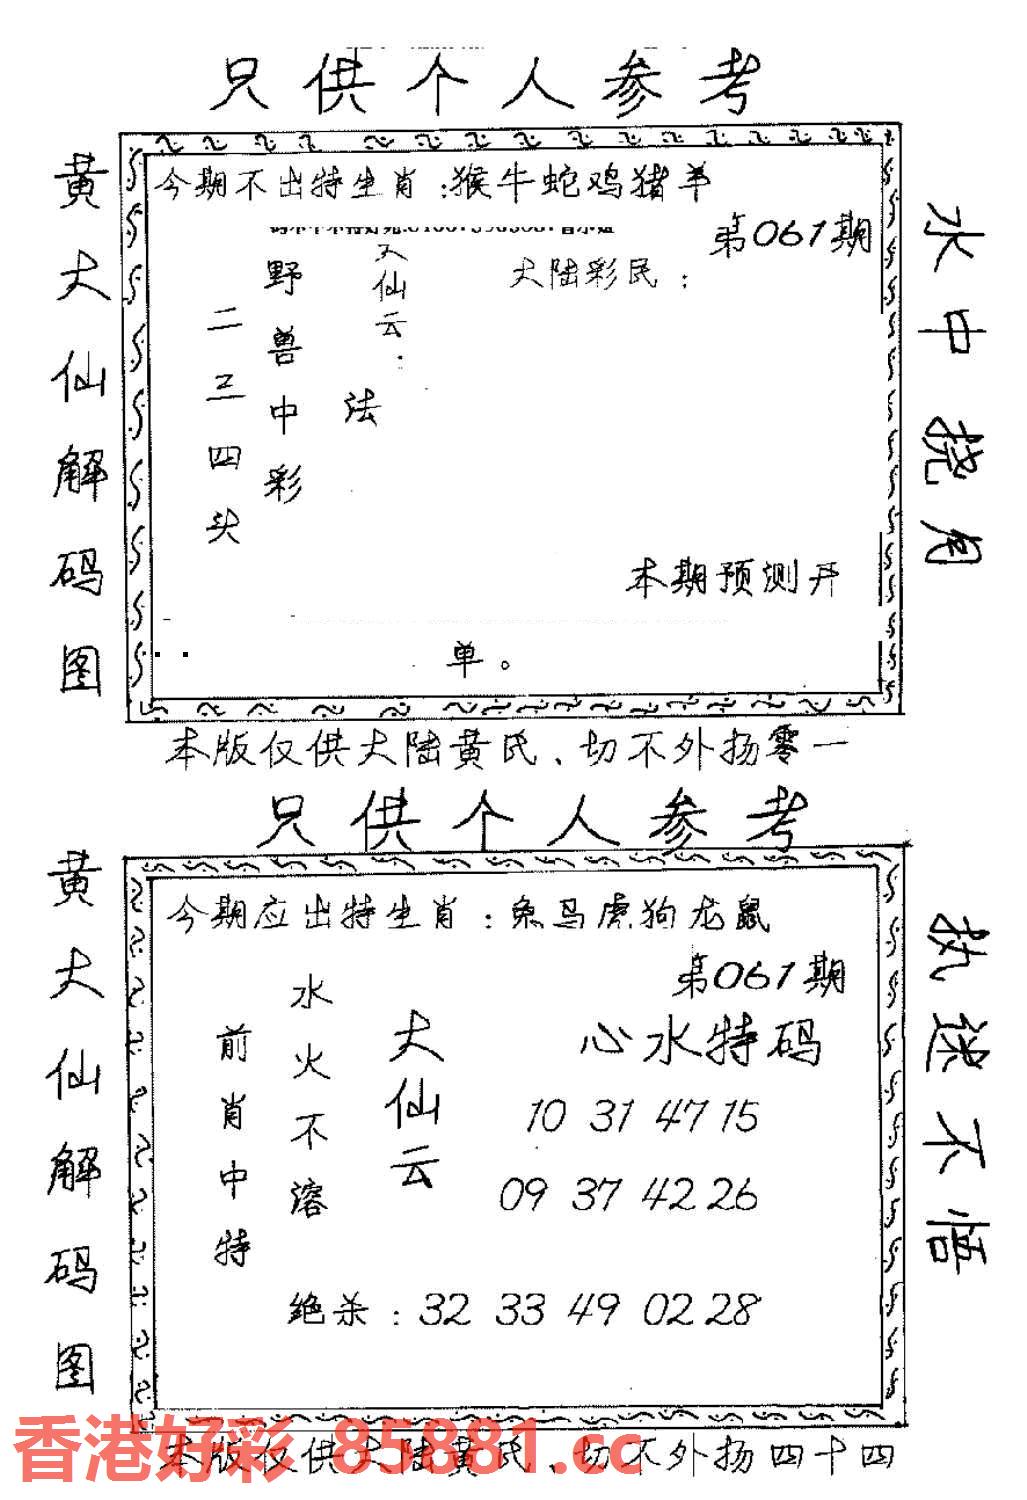 只供个人参考
黄大仙解码图
今期不出特生肖：猴牛蛇鸡猪羊
第061期
大陆彩民：
大仙云：
法
野兽中彩
二三四头
本期预测开
单。
水中捞月
本版仅供大陆黄氏、切不外扬零一
只供个人参考
黄大仙解码图
今期应出特生肖：兔马虎狗龙鼠
第061期
心水特码
大仙云
水火不溶
前肖中特
10 31 47 15
09 37 42 26
绝杀：32 33 49 02 28
执迷不悟
本版仅供大陆黄氏、切不外扬四十四
香港好彩 85881.cc